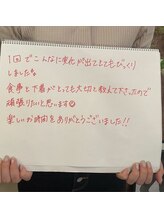 1回でこんなに変化が出てとてもびっくり
しました!!
食事と下着がとっても大切と教えて下さったので
頑張りたいと思います☺
楽しいお時間をありがとうございました!!